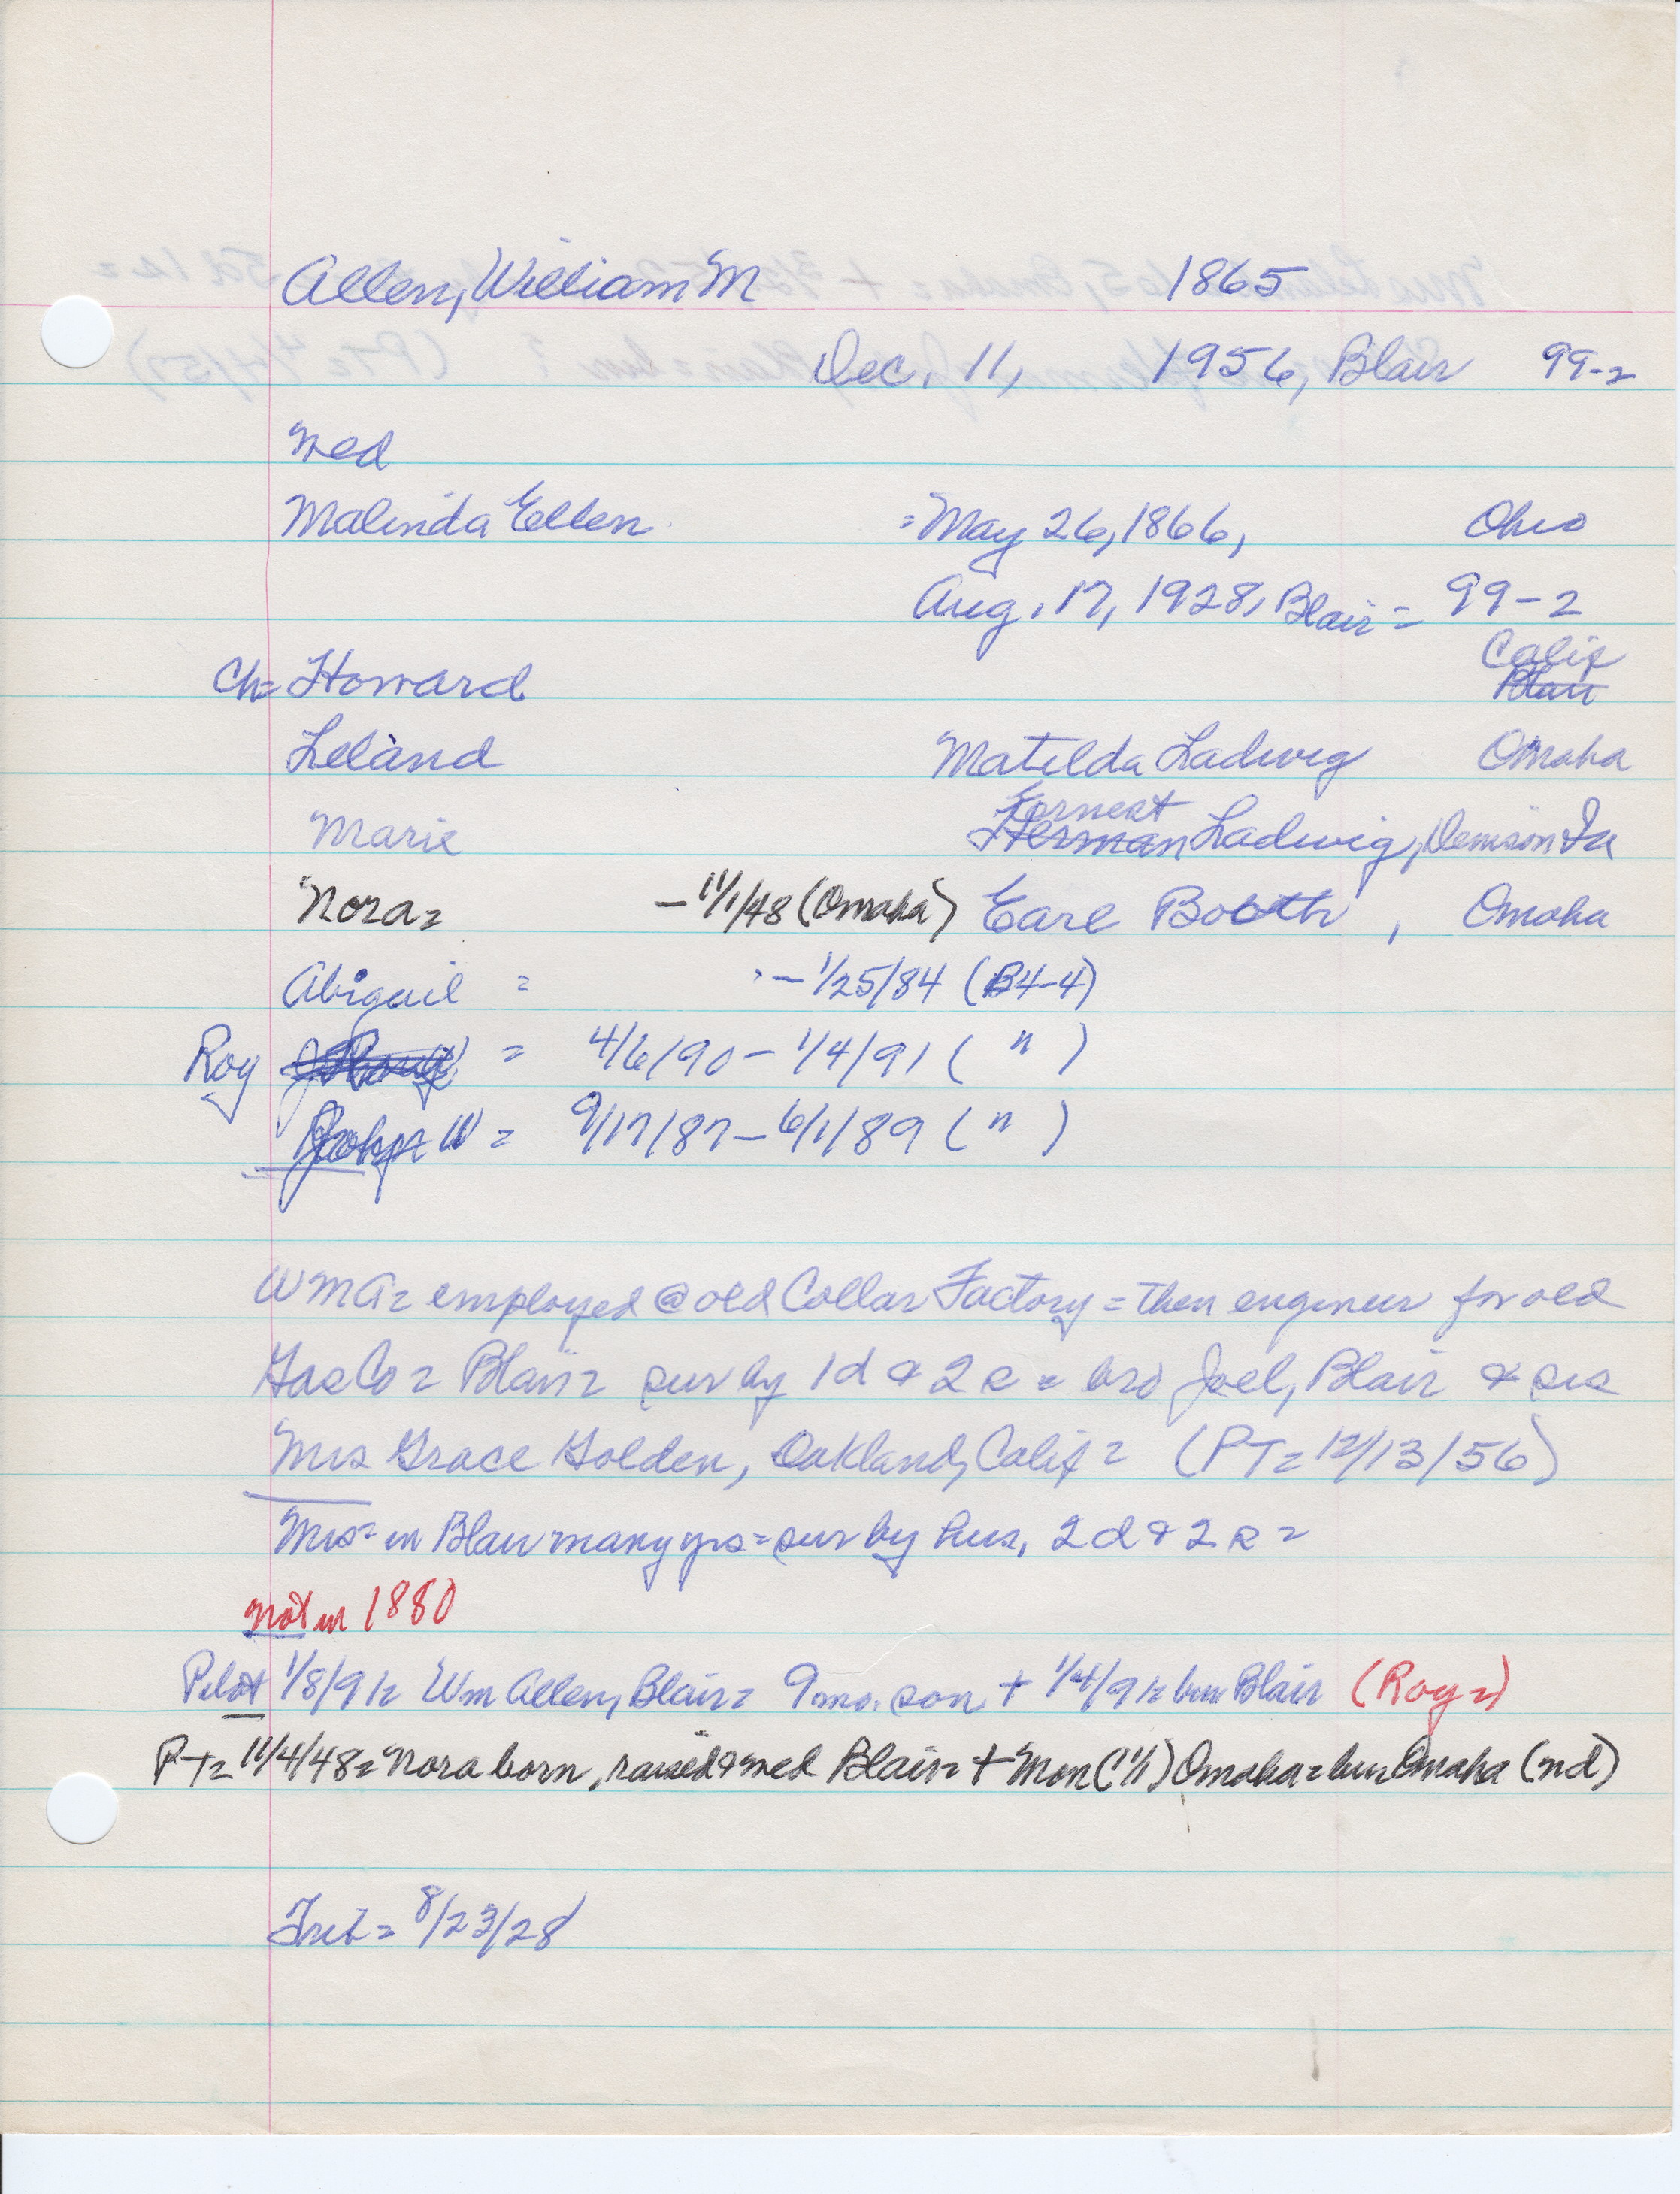 Allen, William M 1865
Dec. 11, 1956, Blair 99-2
Wed
Malinda Ellen = May 26, 1866, Ohio
Aug. 17, 1928, Blair = 99-2
Calif
Ch= Howard Blair
Leland Matilda Ladwig Omaha
Earnest
Marie Herman Ladwig, Denison Ia
Nora= - 11/1/48 (Omaha) Earl Booth, Omaha
Abigail = - 1/25/84 (B4-4)
Roy = 4/6/90 - 1/4/91 ( " )
John W = 9/17/87 - 6/1/89 ( " )
WMA= employed @ old Collar Factory = then engineer for old
Gas Co = Blair = sur by 1d & 2s = bro Joel, Blair & sis
Mrs Grace Golden, Oakland, Calif = (PT= 12/13/56)
Mrs= in Blair many yrs = sur by hus, 2d & 2s =
Not in 1880
Pilot 1/8/91= Wm Allen, Blair= 9 mo. son + 1/4/91= bur Blair (Roy=)
PT= 11/4/48= Nora born, raised & wed Blair= + Mon (11/1) Omaha= bur Omaha (nd)
Trib= 8/23/28